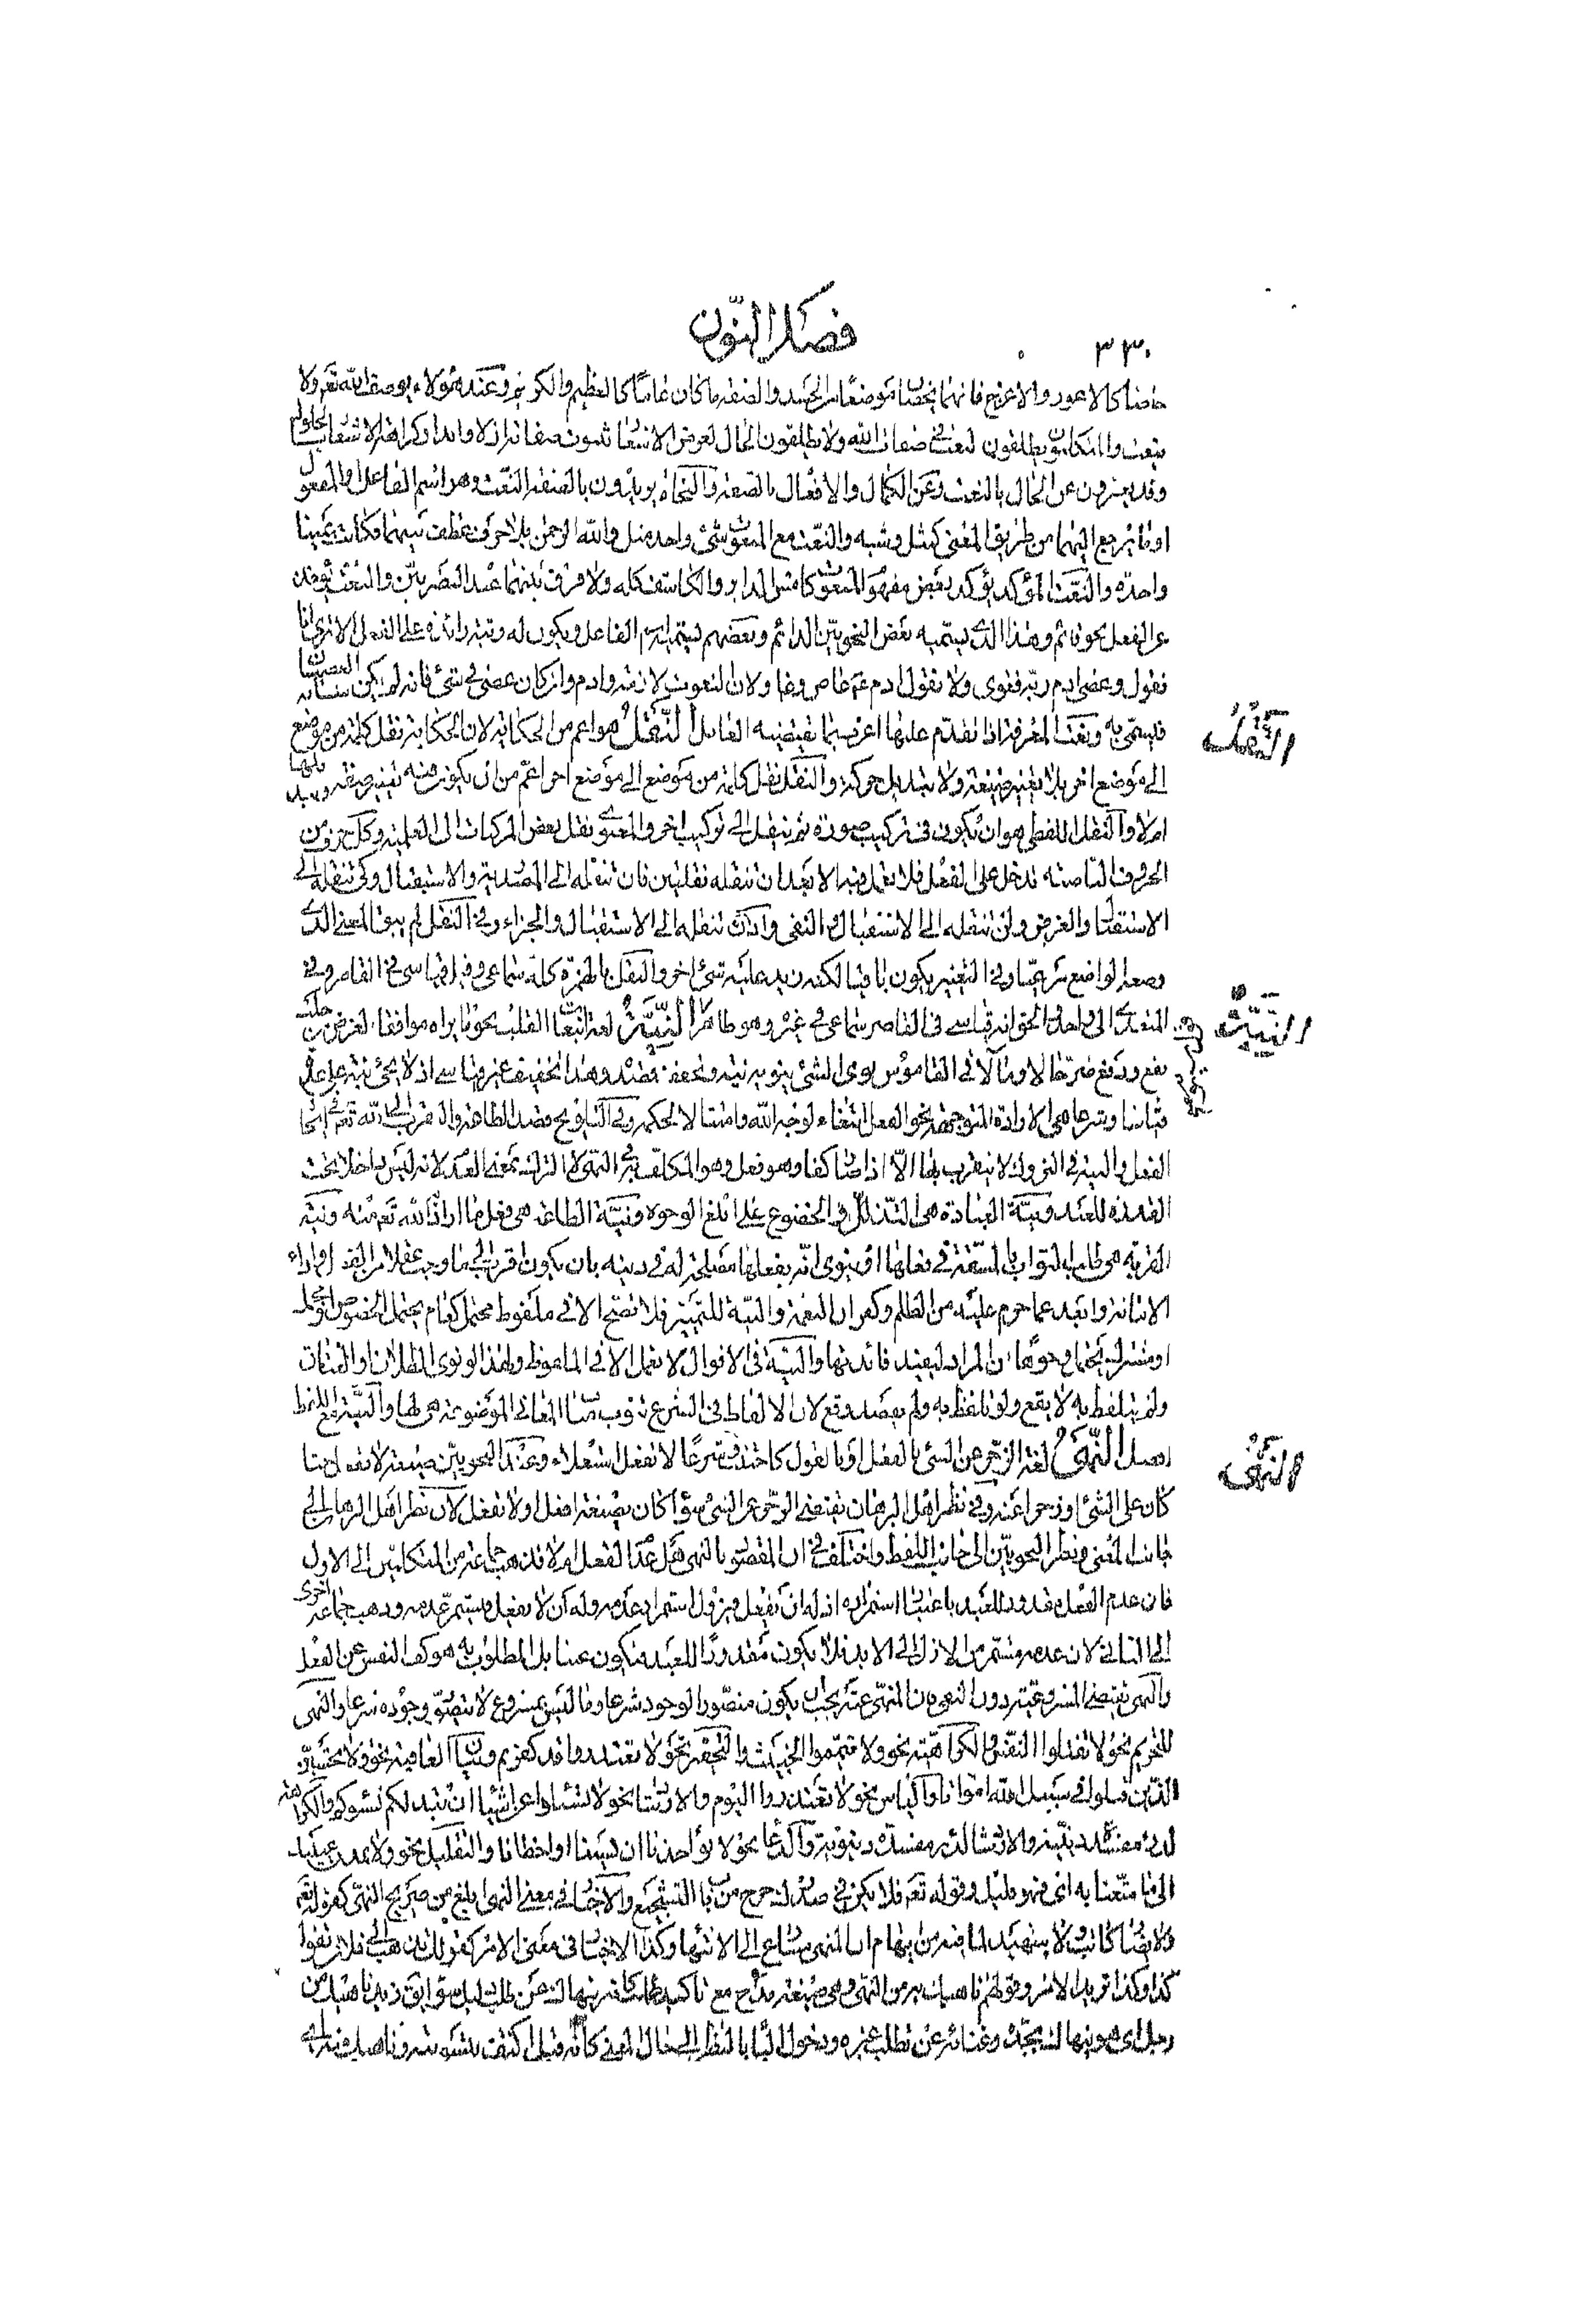 فصل النون
٣٣٠
خاصا كالاعور والاعرج فانهما يخصان موضعا من الجسد والصفة ما كان عاما كالعظيم والكريم وعند هؤلاء يوصف الله تعم ولا
ينعت والمتكلمون يطلقون النعت في صفات الله ولا يطلقون الحال لغرض
وقد يعبرون عن الحال بالنعت وعن الكمال والافعال بالصفة والنحاة يريدون بالصفة النعت وهو اسم الفاعل او المفعول
او ما يرجع اليهما من طريق المعنى كمثل وشبه والنعت مع المنعوت شئ واحد مثل والله الرحمن بلا حرف عطف بينهما فكانت يمينا
واحدة والنعت المؤكد يؤكد بعض مفهوم المنعوت كامس الدابر والكاشف كله ولا فرق بينهما عند البصريين والنعت يؤخذ
عن الفعل نحو قائم وهذا الذي يسميه بعض النحويين الدائم وبعضهم يسميه اسم الفاعل ويكون له رتبة زائدة على الفعل الا ترى انا
نقول وعصى ادم ربه فغوى ولا نقول ادم عم عاص وغاو لان النعوت لازمة وادم وان كان عصى في شئ فانه لم يكن شانه العصيان
فيسمى به ونعت المعرفة اذا تقدم عليها اعرب بما تقتضيه العامل النقل هو اعم من الحكاية لان الحكاية نقل كلمة من موضع
الى موضع اخر بلا تغيير صيغة ولا تبديل حركة والنقل نقل كلمة من موضع الى موضع اخر اعم من ان يكون فيه تغيير صيغة وتبديلها
ام لا والنقل اللفظي هو ان يكون في تركيب صورة ثم ينقل الى تركيب اخر والمعنوي نقل بعض المركبات الى العلمية وكل حرف من
الحروف الناصبة تدخل على الفعل فلا تعمل فيه الا بعد ان تنقله نقلتين فان تنقله الى المصدرية والاستقبال وكي تنقله الى
الاستقبال والغرض ولن تنقله الى الاستقبال والنفي واذن تنقله الى الاستقبال والجزاء وفي النقل لم يبق المعنى الذي
وضعه الواضع مرعيا وفي التغيير يكون باقيا لكنه زيد عليه شئ اخر والنقل بالهمزة كله سماعي وقيل قياسي في القاصر وفي
المتعدي الى واحد والحق انه قياسي في القاصر سماعي في غيره وهو ظاهر النية لغة انبعاث القلب نحو ما يراه موافقا لغرض من جلب
نفع ودفع ضر حالا او مالا في القاموس نوى الشئ ينويه نية وتخفف قصده وهذا التخفيف غير قياسي اذ لا يجئ نية على عدة
قياسا وشرعا هي الارادة المتوجهة نحو الفعل ابتغاء لوجه الله وامتثالا لحكمه وفي التلويح قصد الطاعة والتقرب الى الله تعم في ايجاد
الفعل والنية في التروك لا يتقرب بها الا اذا صار كفا وهو فعل وهو المكلف به في النهي لا الترك بمعنى العدم لانه ليس داخلا تحت
القدرة للعبد ونية العبادة هي التذلل والخضوع على ابلغ الوجوه ونية الطاعة هي فعل ما اراد الله تعم منه ونية
القربة هي طلب الثواب بالمشقة في فعلها او ينوي انه يفعلها مصلحة له في دينه بان يكون اقرب الى ما وجب عقلا من الفعل واداء
الامانة وابعد عما حرم عليه من الظلم وكفران النعمة والنية للتمييز فلا تصح الا في ملفوظ محتمل كعام يحتمل الخصوص او مجمل
او مشترك يحتمل وجوها من المراد ليفيد فائدتها والنية في الاقوال لا تعمل الا في الملفوظ ولهذا لو نوى الطلاق او العتاق
ولم يتلفظ به لا يقع ولو تلفظ به ولم يقصد وقع لان الالفاظ في الشرع تنوب مناب المعاني الموضوعة هي لها والنية مع اللفظ
افضل النهي لغة الزجر عن الشئ بالفعل او بالقول كاجتنب وشرعا لا تفعل استعلاء وعند النحويين صيغة لا تفعل حثا
كان على الشئ او زجرا عنه وفي نظر اهل البرهان تقتضي الزجر عن الشئ سواء كان بصيغة افعل او لا تفعل لان نظر اهل البرهان الى
جانب المعنى ونظر النحويين الى جانب اللفظ واختلف في ان المقصود بالنهي هل عدم الفعل ام لا فذهب جماعة من المتكلمين الى الاول
فان عدم الفعل مقدور للعبد باعتبار استمراره اذ له ان يفعل فيزول استمرار عدمه وله ان لا يفعل فيستمر عدمه وذهب جماعة اخرى
الى الثاني لان عدمه مستمر من الازل الى الابد فلا يكون مقدورا للعبد فيكون عبثا بل المطلوب به هو كف النفس عن الفعل
والنهي يقتضي المشروعية دون النفي لان المنهي عنه يجب ان يكون متصور الوجود شرعا وما ليس بمشروع لا يتصور وجوده شرعا والنهي
للتحريم نحو لا تقتلوا النفس والكراهية نحو ولا تيمموا الخبيث والتحقير نحو لا تعتذروا قد كفرتم وبيان العاقبة نحو ولا تحسبن
الذين قتلوا في سبيل الله امواتا والياس نحو لا تعتذروا اليوم والارشاد نحو لا تسئلوا عن اشياء ان تبد لكم تسؤكم والكراهة
لدفع مفسدة دينية والارشاد لدرء مفسدة دنيوية والدعاء نحو لا تؤاخذنا ان نسينا او اخطانا والتقليل نحو ولا تمدن عينيك
الى ما متعنا به اى فهو قليل وقوله تعم فلا يكن في صدرك حرج من باب التشجيع والاخبار في معنى النهي ابلغ من صريح النهي كقوله تعم
ولا يضار كاتب ولا شهيد لما فيه من ايهام ان المنهي مسارع الى الانتهاء وكذا الاخبار في معنى الامر كقولك تذهب الى فلان تقول
كذا وكذا تريد الامر وقولهم ناهيك به من النهي وهي صيغة مدح مع تاكيد طلب كانه ينهاك عن طلب دليل سواه يق زيد ناهيك من
رجل اى هو ينهاك بجده وغنائه عن تطلب غيره ودخول الباء بالنظر الى حال المعنى كانه قيل اكتف بتسويته وناهيك منه اى
النقل
النية
النهي